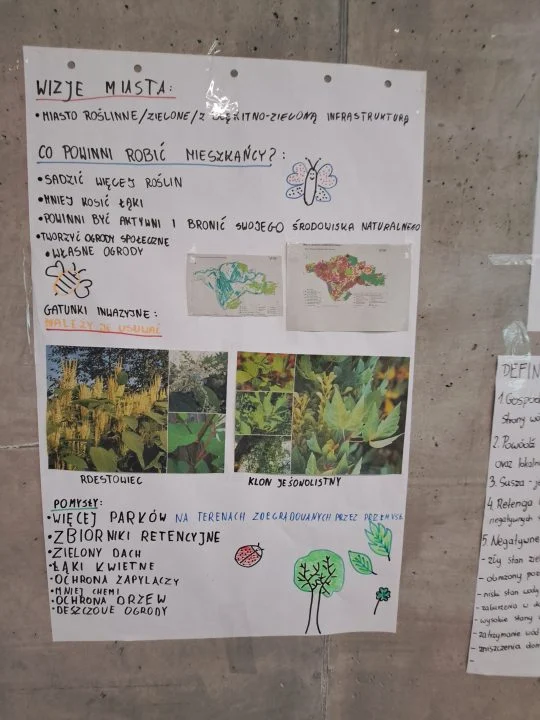 WIZJE MIASTA:
• MIASTO ROŚLINNE/ZIELONE/Z BŁĘKITNO-ZIELONĄ INFRASTRUKTURĄ
CO POWINNI ROBIĆ MIESZKAŃCY?:
• SADZIĆ WIĘCEJ ROŚLIN
• MNIEJ KOSIĆ ŁĄKI
• POWINNI BYĆ AKTYWNI I BRONIĆ SWOJEGO ŚRODOWISKA NATURALNEGO
• TWORZYĆ OGRODY SPOŁECZNE
• WŁASNE OGRODY
GATUNKI INWAZYJNE:
NALEŻY JE USUWAĆ
RDESTOWIEC
KLON JESIONOLISTNY
POMYSŁY:
• WIĘCEJ PARKÓW NA TERENACH ZDEGRADOWANYCH PRZEZ PRZEMYSŁ
• ZBIORNIKI RETENCYJNE
• ZIELONY DACH
• ŁĄKI KWIETNE
• OCHRONA ZAPYLACZY
• MNIEJ CHEMI
• OCHRONA DRZEW
• DESZCZOWE OGRODY
DEFIN
1. Gospod
strony wo
2. Powódź
oraz lokaln
3. Susza - je
4. Retencja
negatywnych
5. Negatywne
- zły stan ziel
- obniżony poz
- niski stan wody
- zaburzenia w d
- wysokie stany
- zatrzymanie wód
- zniszczenia dom